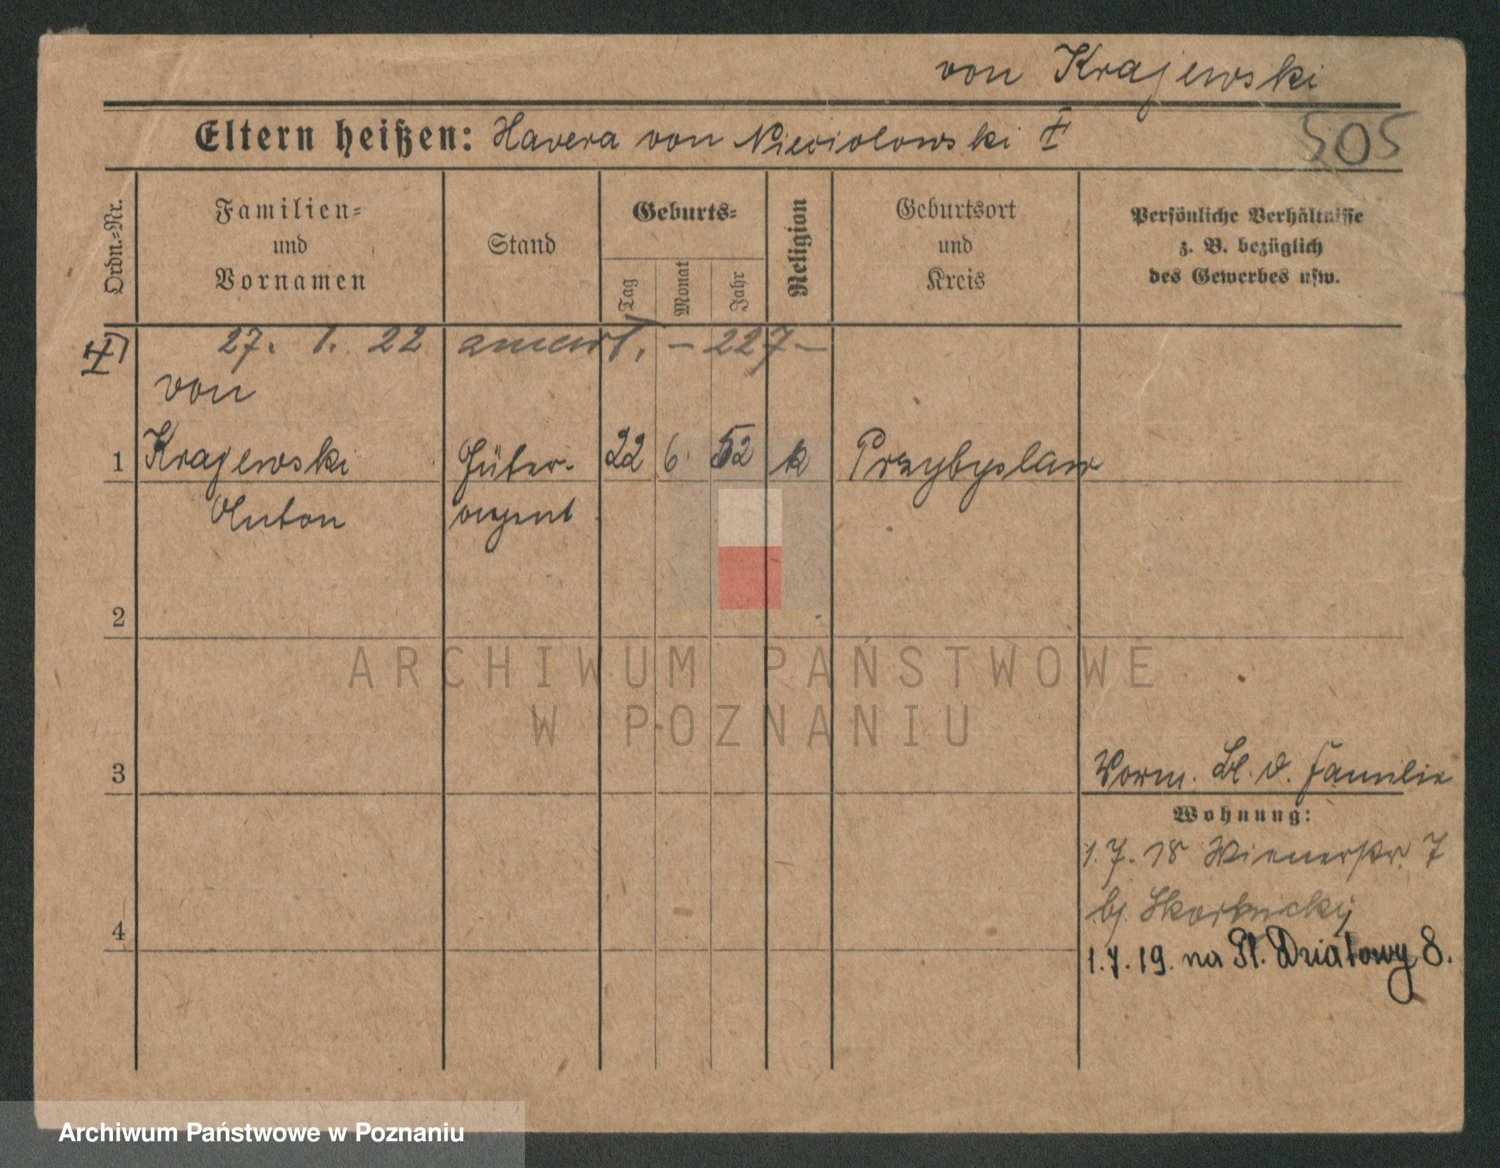 von Krajewski
Eltern heißen: Havera von Niewiolowski ‡
505
Ordn.-Nr.
Familien-
und
Vornamen
Stand
Geburts-
Tag
Monat
Jahr
Religion
Geburtsort
und
Kreis
Persönliche Verhältnisse
z. B. bezüglich
des Gewerbes usw.
27. 1. 22 - 227 -
von
1 Krajewski Güter- 22 6. 52 k Przybyslaw
Anton agent
2
ARCHIWUM PAŃSTWOWE
W POZNANIU
3
Worm. Bl. d. Familie
Wohnung:
1.7.18 Wienerstr. 7
4
1.7.19. na Pl. Działowy 8.
Archiwum Państwowe w Poznaniu